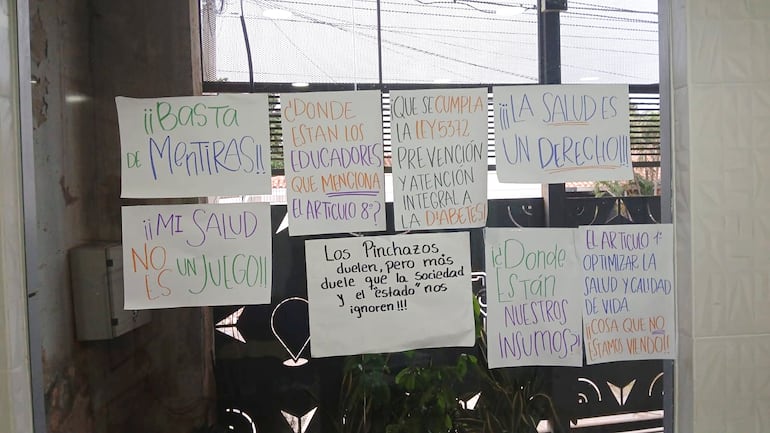 ¡¡BASTA
DE MENTIRAS!!
¿DONDE
ESTAN LOS
EDUCADORES
QUE MENCIONA
EL ARTICULO 8°?
QUE SE CUMPLA
LA LEY 5372
PREVENCIÓN
Y ATENCIÓN
INTEGRAL A
LA DIABETES
¡¡¡LA SALUD ES
UN DERECHO!!!
¡¡MI SALUD
NO ES
UN JUEGO!!
Los Pinchazos
duelen, pero más
duele que la sociedad
y el "estado" nos
ignoren!!!
¡¿Donde
ESTÁN
NUESTROS
INSUMOS?!
EL ARTICULO 1°
OPTIMIZAR LA
SALUD Y CALIDAD
DE VIDA.
¡¡COSA QUE NO
ESTAMOS VIENDO!!